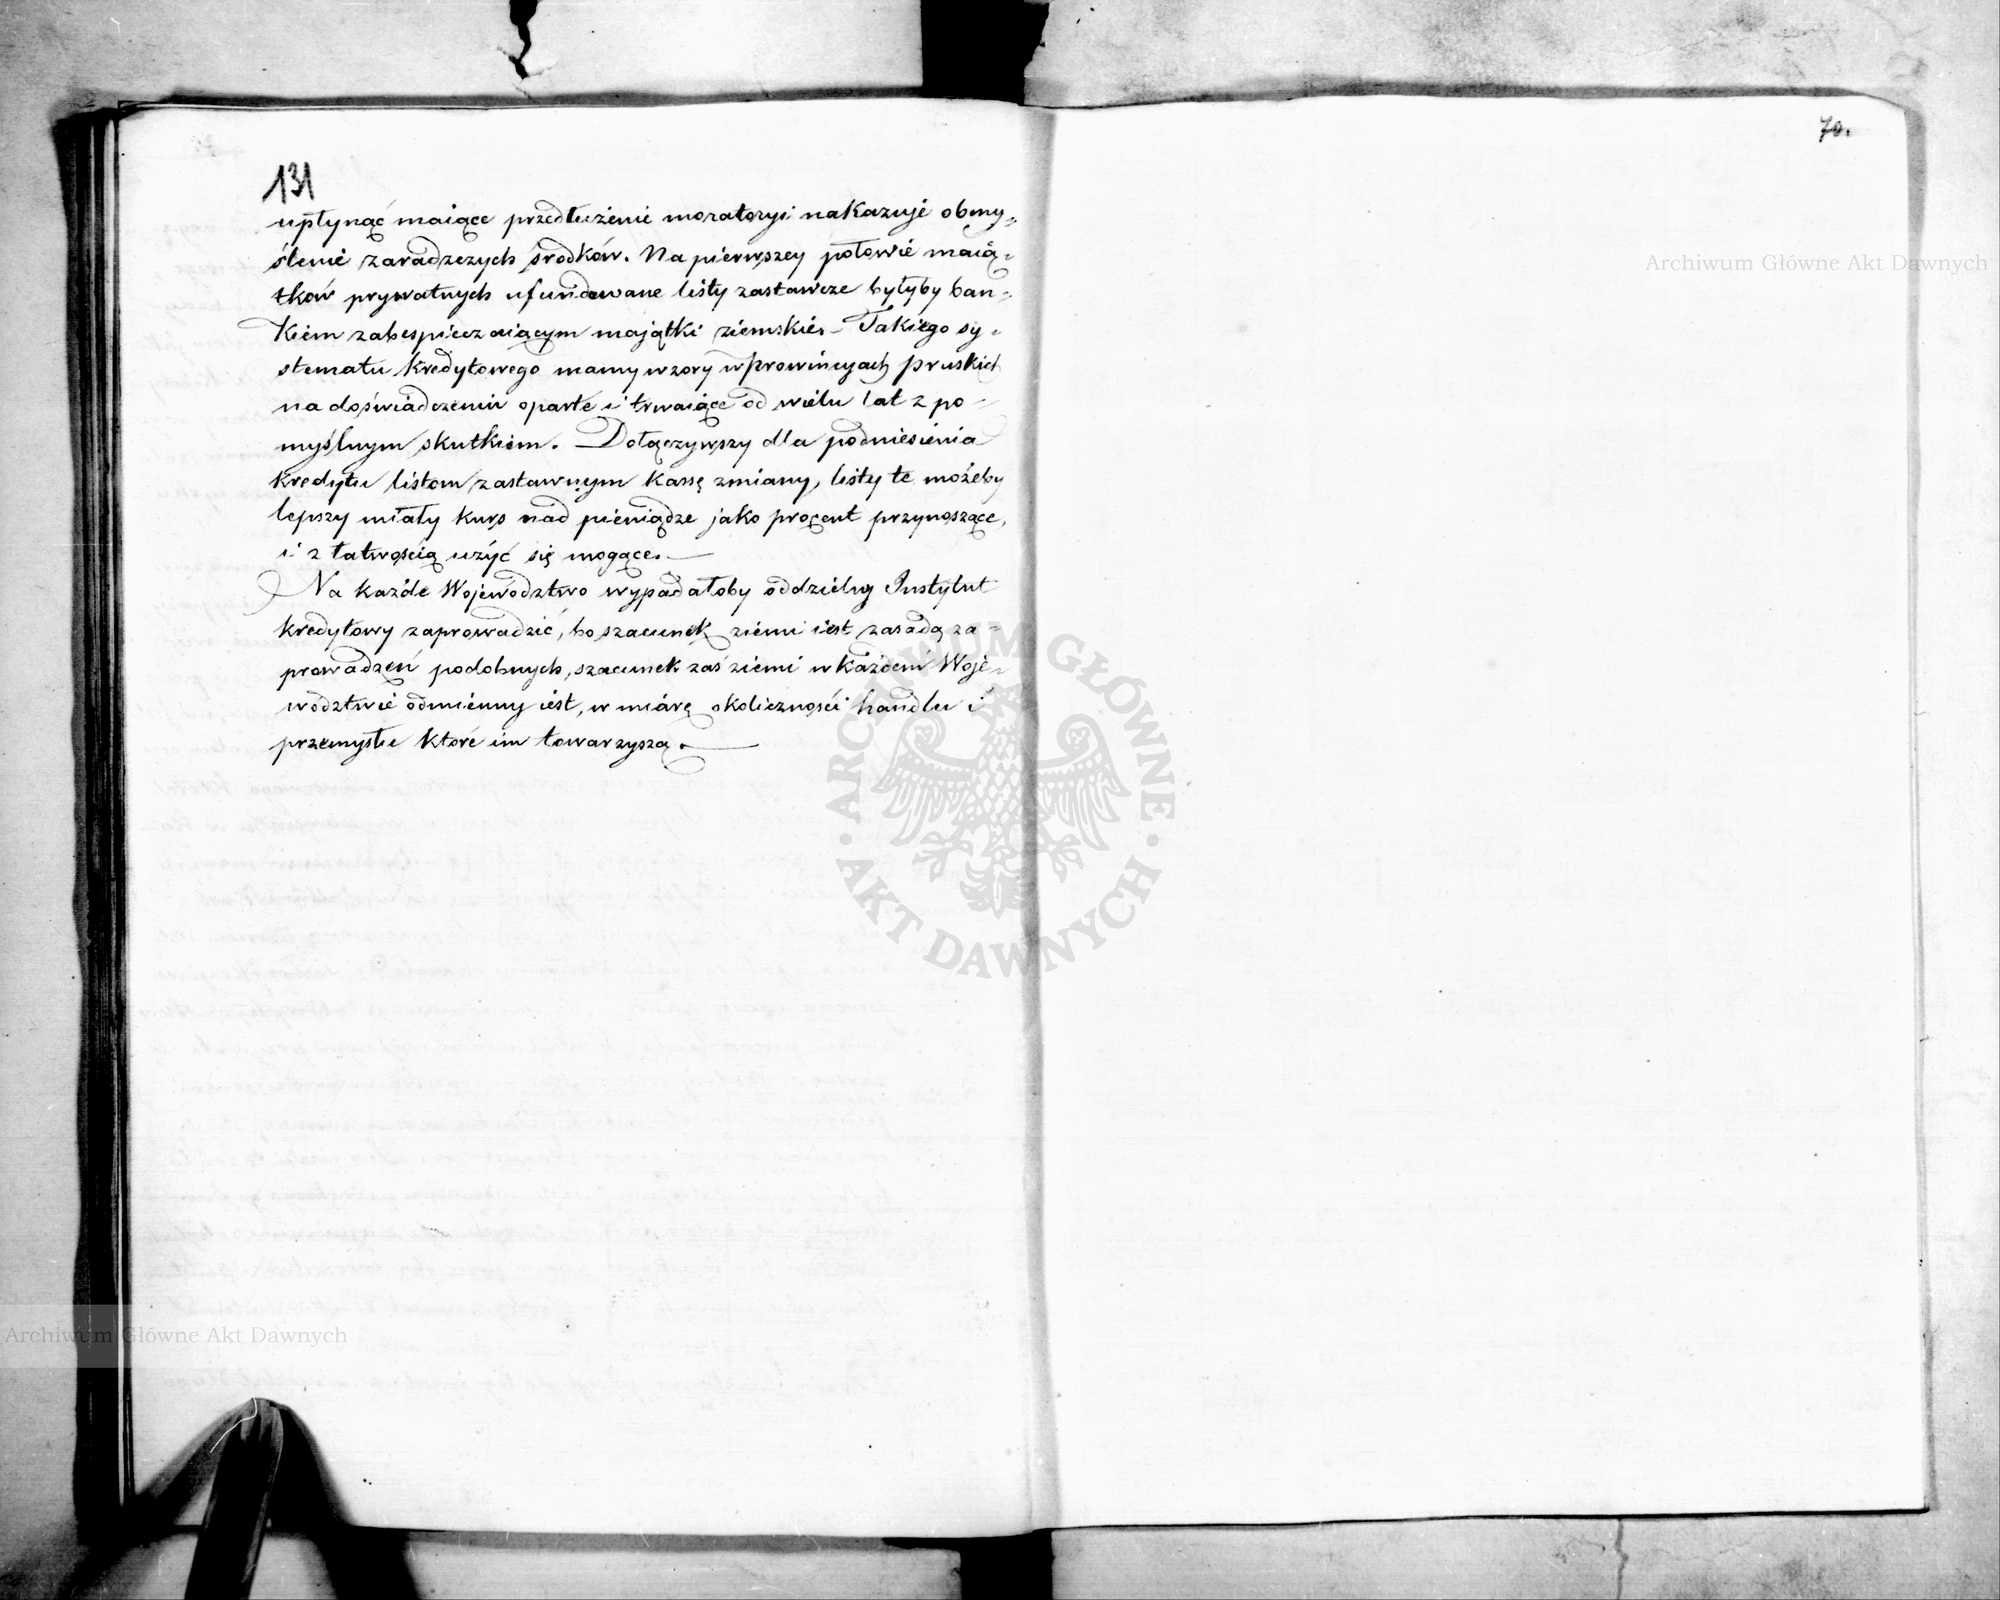 131
upłynąć maiące przedłużenie moratoryi nakazuje obmy-
ślenie zaradzczych środków. Na pierwszey połowie maią-
tków prywatnych ufundowane listy zastawcze byłyby ban-
kiem zabespieczaiącym majątki ziemskie. – Takiego sy-
stematu kredytowego mamy wzory w prowincyach pruskich
na doświadczeniu oparte i trwaiące od wielu lat z po-
myślnym skutkiem. Dołączywszy dla podniesienia
kredytu listom zastawnym kassę zmiany, listy te możeby
lepszy miały kurs nad pieniądze jako procent przynoszące,
i z łatwością użyć się mogące. —
Na każde Województwo wypadałoby oddzielny Instytut
kredytowy zaprowadzić, bo szacunek ziemi iest zasadą za-
prowadzeń podobnych, szacunek zaś ziemi w każdem Woje-
wództwie odmienny iest, w miarę okoliczności handlu i
przemysłu które im towarzyszą. —
70.
Archiwum Główne Akt Dawnych
ARCHIWUM GŁÓWNE
AKT DAWNYCH
Archiwum Główne Akt Dawnych